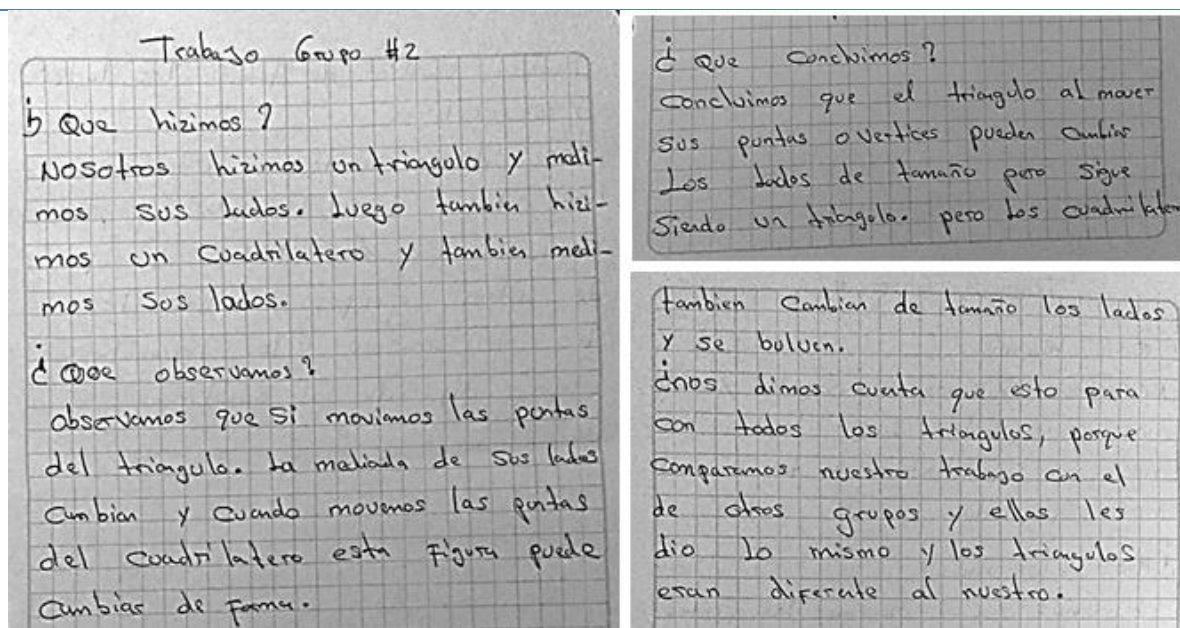 Trabajo Grupo #2
¿ Que hizimos ?
Nosotros hizimos un triangulo y medi-
mos sus lados. Luego tambien hizi-
mos un Cuadrilatero y tambien medi-
mos sus lados.
¿ Que observamos ?
observamos que si moviamos las puntas
del triangulo. La medida de sus lados
cambian y cuando movemos las puntas
del cuadrilatero esta Figura puede
cambiar de Forma.
¿ Que concluimos ?
Concluimos que el triangulo al mover
sus puntas o vertices pueden cambiar
Los lados de tamaño pero sigue
siendo un triangulo. pero los cuadrilatero
tambien cambian de tamaño los lados
y se bolven.
¿nos dimos cuenta que esto para
con todos los triangulos, porque
comparamos nuestro trabajo con el
de otros grupos y ellos les
dio lo mismo y los triangulos
eran diferente al nuestro.